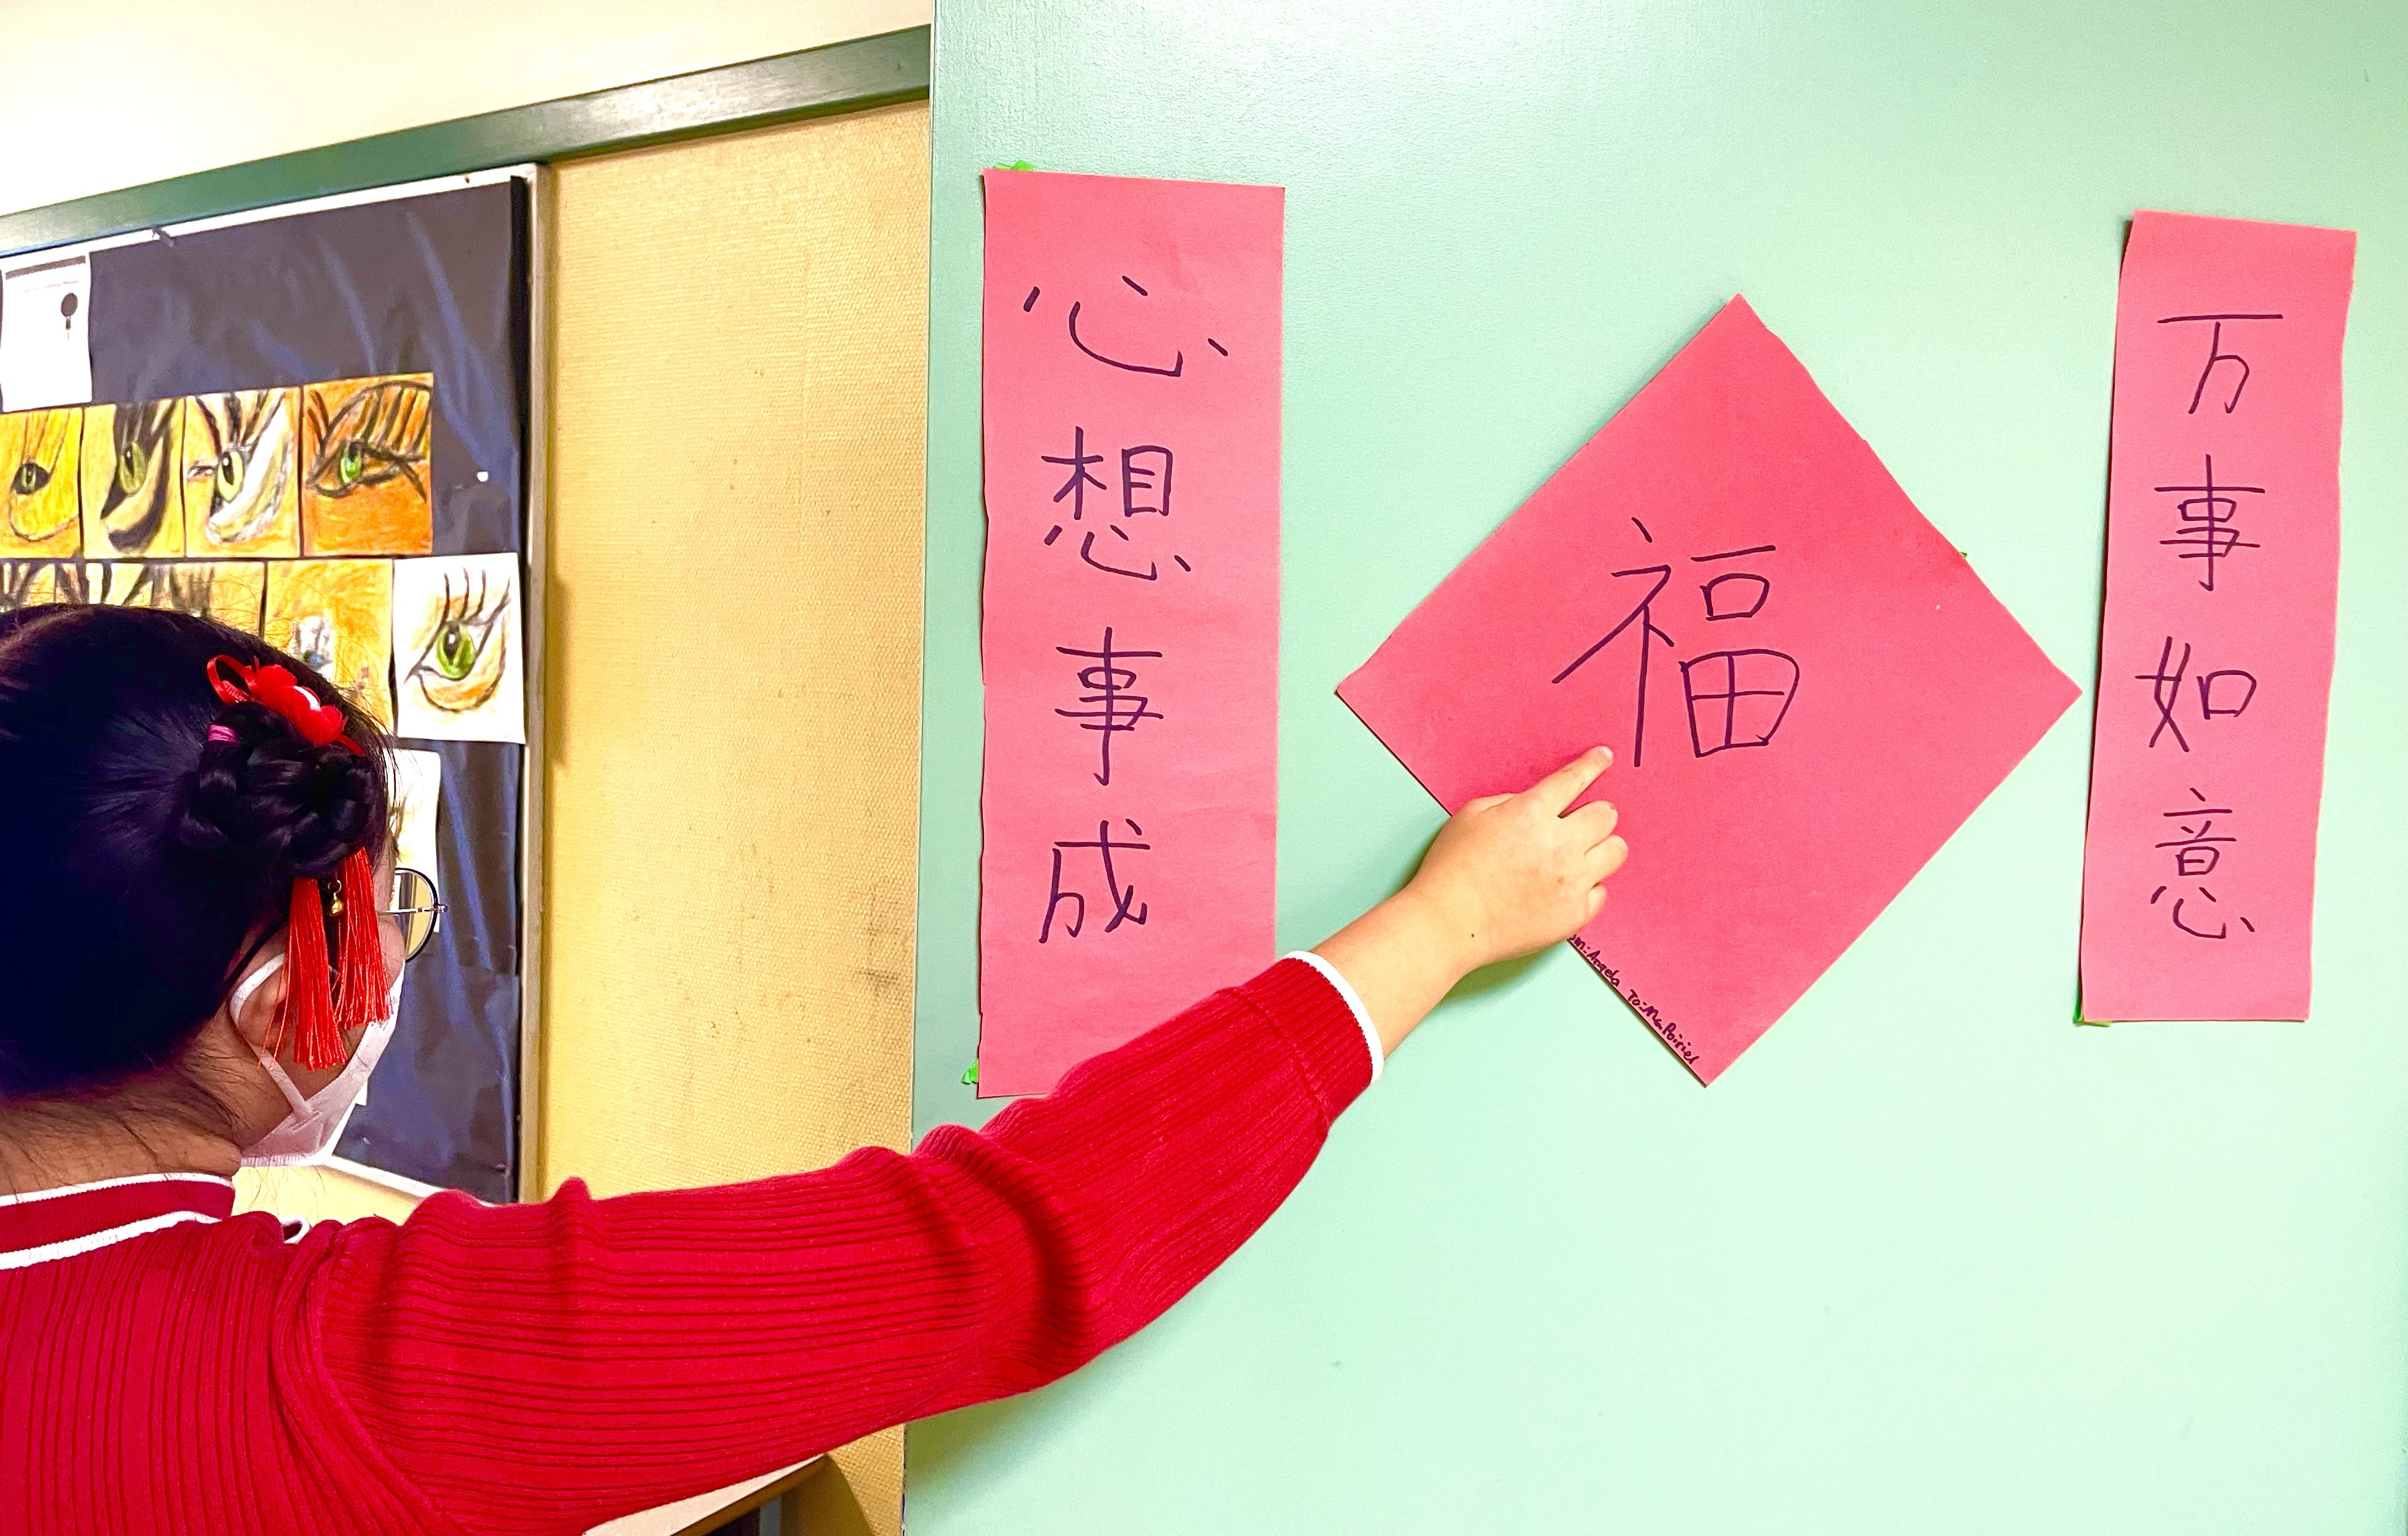 心想事成
福
万事如意
Angela To: Ms Poiriel